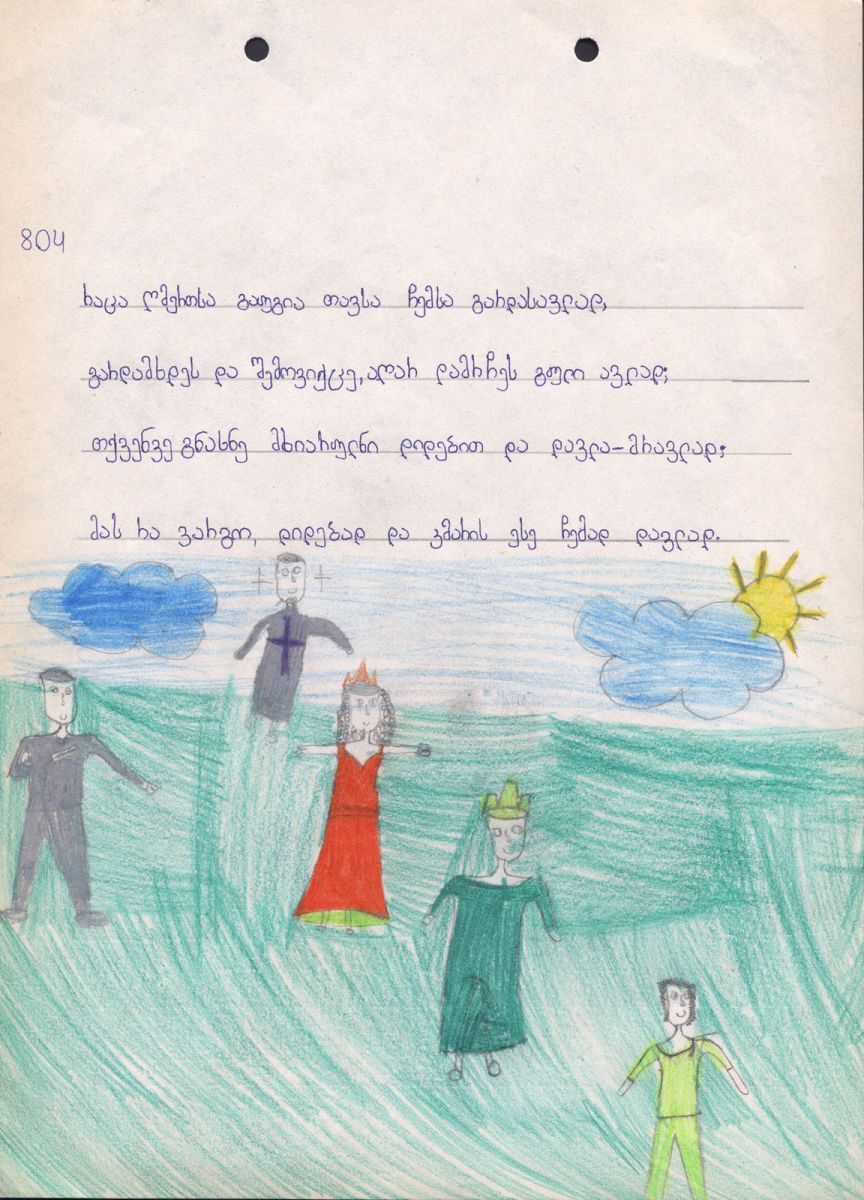 804
რაცა ღმერთსა გაუგია თავსა ჩემსა გარდასავლად,
გარდამხდეს და შემოვიქცე, აღარ დამრჩეს გული ავლად;
თქვენვე გნახნე მხიარულნი დიდებით და დავლა-მრავლად;
მას რა ვარგო, დიდებად და კმარის ესე ჩემად დავლად.